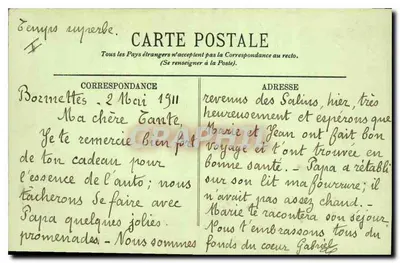 Temps superbe.
CARTE POSTALE
Tous les Pays étrangers n'acceptent pas la Correspondance au recto.
(Se renseigner à la Poste).
CORRESPONDANCE
Bormettes - 2 Mai 1911
Ma chère Tante,
Je te remercie bien fort
de ton cadeau pour
l'essence de l'auto ; nous
tâcherons de faire avec
Papa quelques jolies
promenades. - Nous sommes
ADRESSE
revenus des Salins, hier, très
heureusement et espérons que
Marie et Jean ont fait bon
voyage et t'ont trouvée en
bonne santé. - Papa a rétabli
sur son lit ma fourrure ; il
n'avait pas assez chaud. -
Marie te racontera son séjour.
Nous t'embrassons tous du
fonds du coeur Gabriel